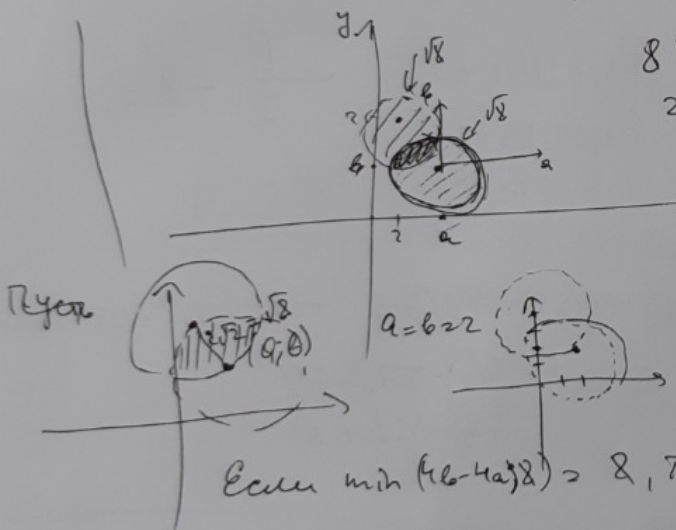 y
√8
8
в
√8
2
в
a
2
a
Пусть
√8
(a; в)
a = в = 2
Если min (4в-4a; 8) = 8, т